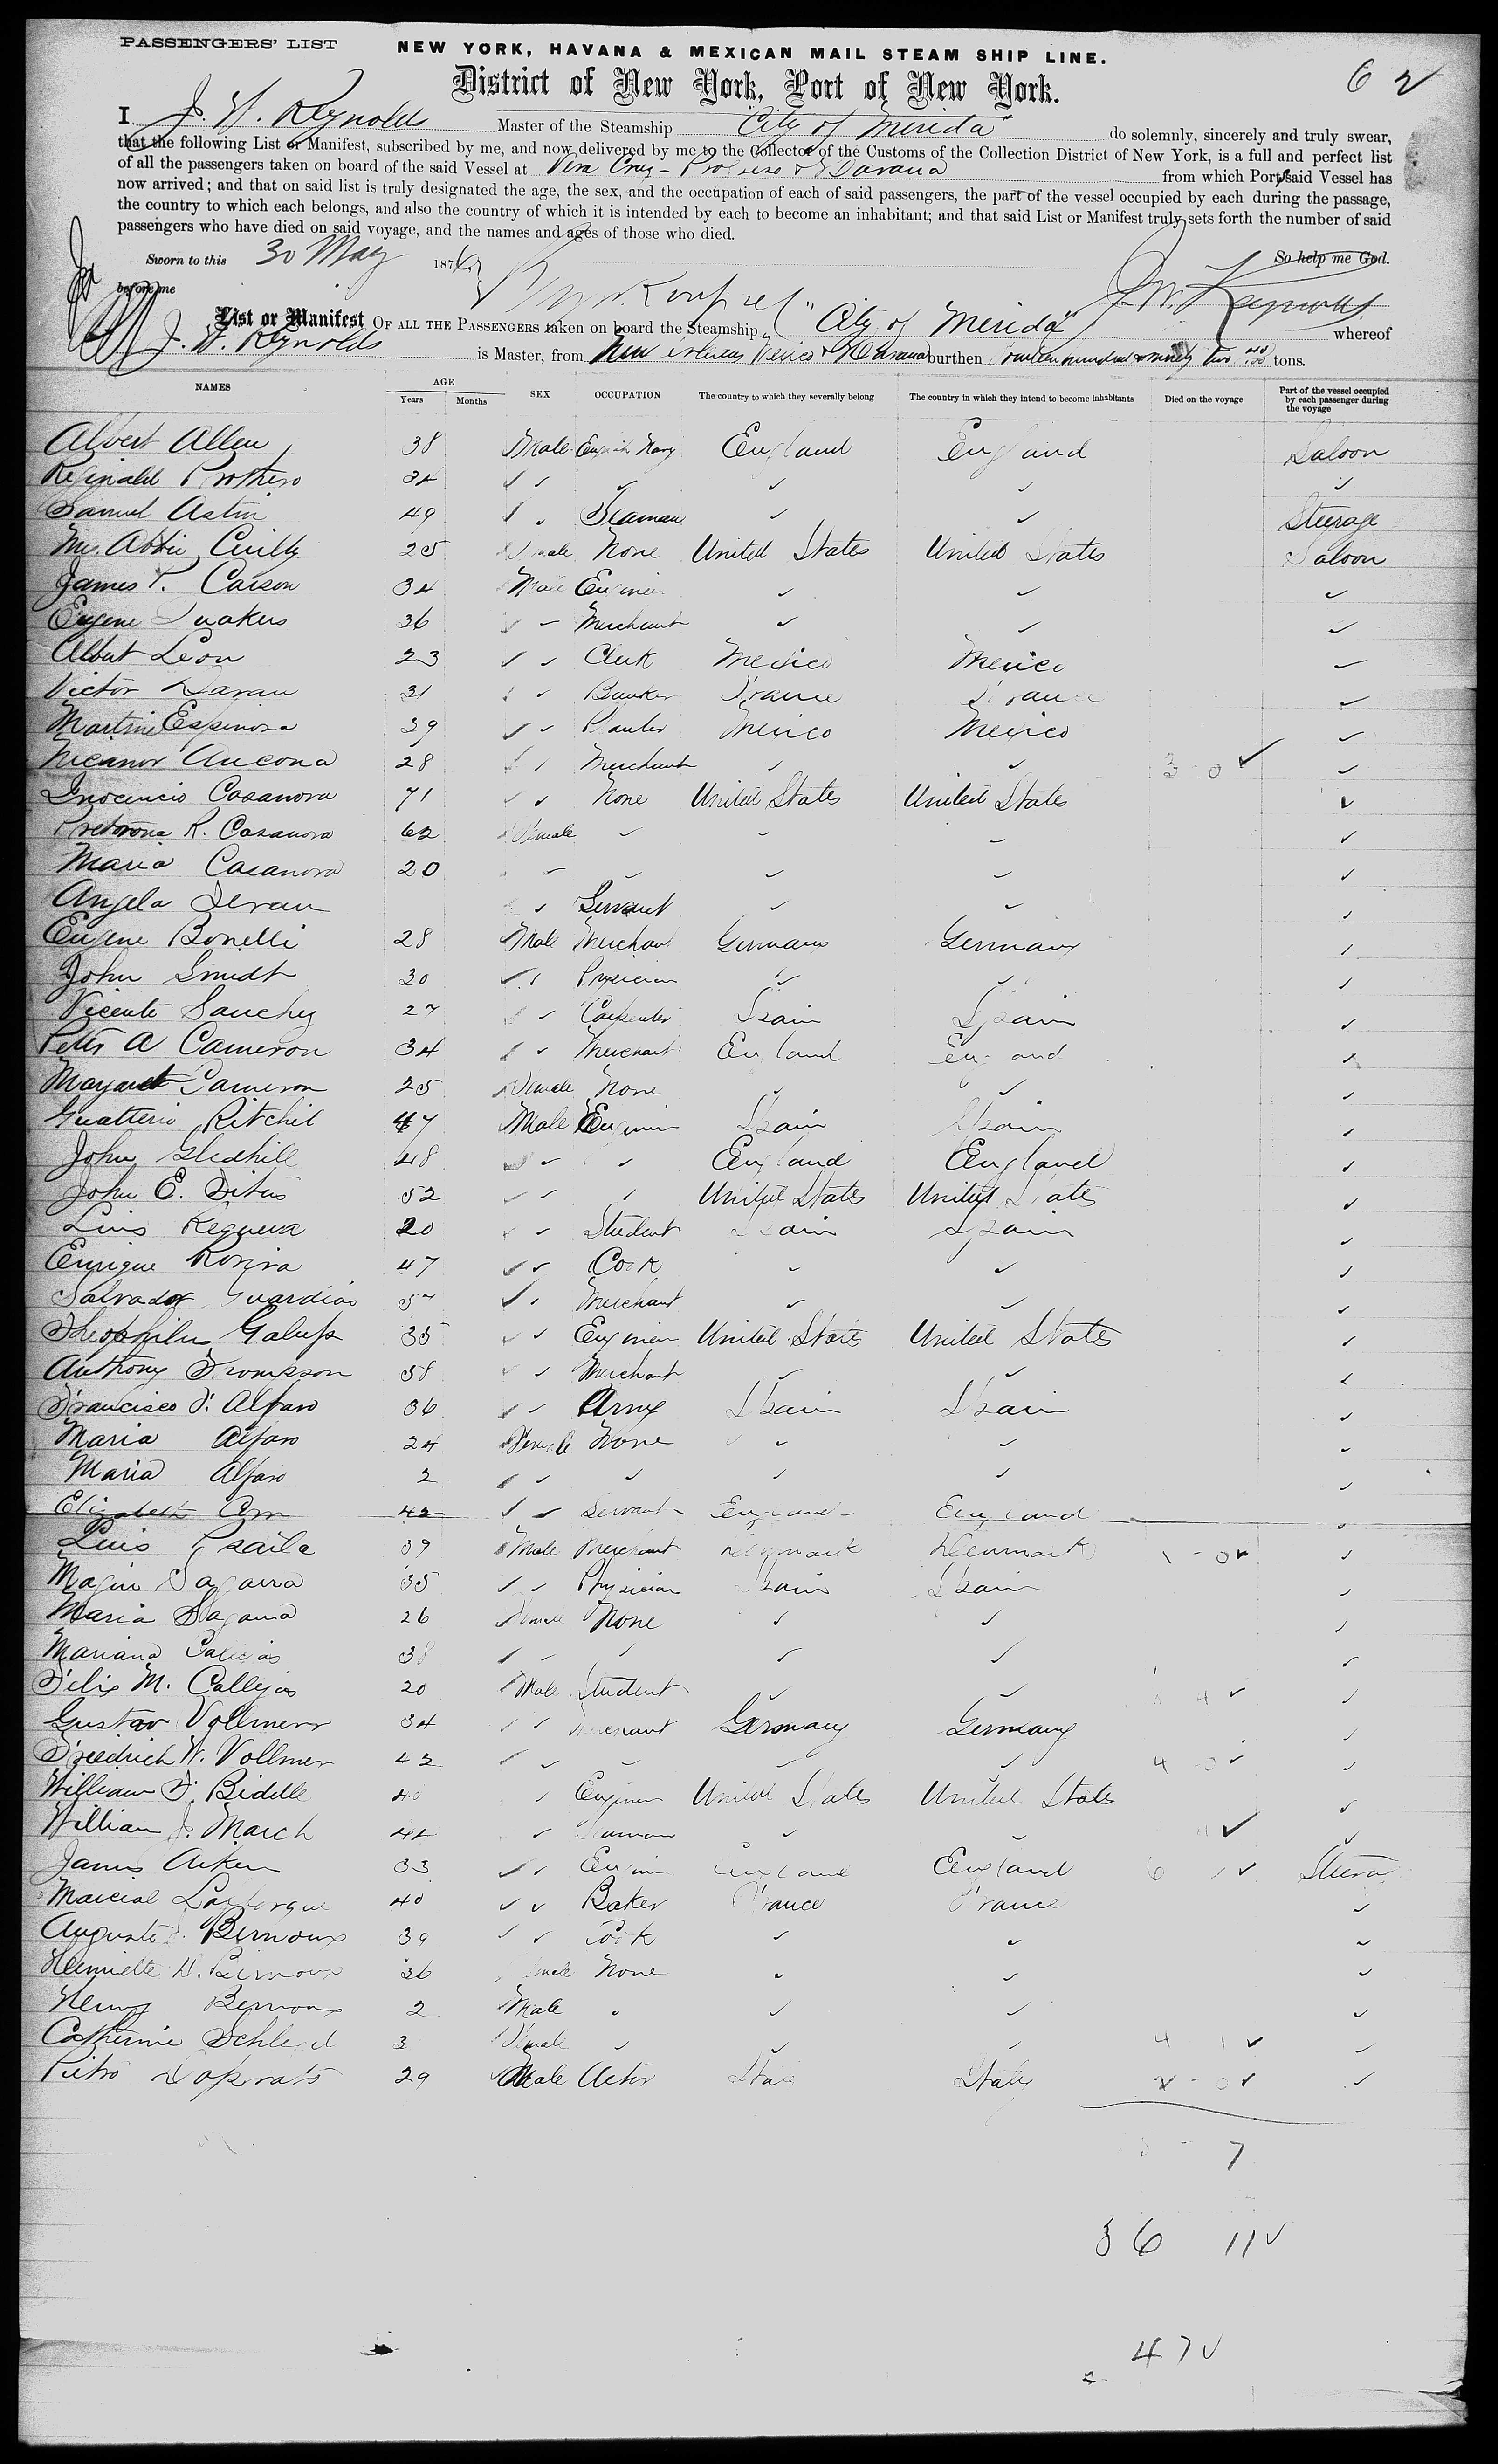 PASSENGERS' LIST
NEW YORK, HAVANA & MEXICAN MAIL STEAM SHIP LINE.
6 2
District of New York, Port of New York.
I J. W. Reynolds Master of the Steamship "City of Merida" do solemnly, sincerely and truly swear,
that the following List or Manifest, subscribed by me, and now delivered by me to the Collector of the Customs of the Collection District of New York, is a full and perfect list
of all the passengers taken on board of the said Vessel at Vera Cruz - Progreso & Havana from which Port said Vessel has
now arrived; and that on said list is truly designated the age, the sex, and the occupation of each of said passengers, the part of the vessel occupied by each during the passage,
the country to which each belongs, and also the country of which it is intended by each to become an inhabitant; and that said List or Manifest truly sets forth the number of said
passengers who have died on said voyage, and the names and ages of those who died.
Sworn to this 30 May 187 So help me God.
before me J. W. Reynolds
List or Manifest OF ALL THE PASSENGERS taken on board the Steamship "City of Merida" whereof
J. W. Reynolds is Master, from New Orleans Mexico & Havana burthen fourteen hundred & ninety two tons.
NAMES AGE Years Months SEX OCCUPATION The country to which they severally belong The country in which they intend to become inhabitants Died on the voyage Part of the vessel occupied by each passenger during the voyage
Albert Allen 38 Male English Navy England England Saloon
Reginald Prothero 34 ✓ ✓ ✓ ✓ ✓ ✓
Samuel Astin 49 ✓ Seaman ✓ ✓ Steerage
Mrs. Abbie 25 Female None United States United States Saloon
James P. Carson 34 Male Engineer ✓ ✓ ✓
Eugene 36 Merchant ✓ ✓ ✓
Albert Leon 23 ✓ ✓ Clerk Mexico Mexico ✓
Victor 31 ✓ Banker France France ✓
Martin Espinosa 39 ✓ ✓ Planter Mexico Mexico ✓
Nicanor Ancona 28 Merchant ✓ ✓ 3 - 0 ✓ ✓
Inocencio Casanova 71 ✓ ✓ None United States United States ✓
R. Casanova 62 Female ✓ ✓
Maria Casanova 20 ✓ ✓ ✓ ✓
Angela ✓ Servant ✓ ✓
Eugene Bonelli 28 Male Merchant Germany Germany
John Smidt 30 Physician ✓ ✓ ✓
Vicente Sanchez 27 ✓ Carpenter Spain Spain ✓
Peter A Cameron 34 ✓ Merchant England England
Margaret Cameron 25 Female None ✓ ✓ ✓
Gualterio Ritchie 47 Male Engineer Spain Spain ✓
John Gledhill 48 ✓ ✓ England England ✓
John E. Titus 52 ✓ ✓ ✓ United States United States ✓
Luis 20 ✓ Student Spain Spain ✓
Enrique Rovira 47 ✓ ✓ Cook ✓ ✓ ✓
Salvador Guardias 57 ✓ Merchant ✓ ✓ ✓
Theophilus 35 ✓ ✓ Engineer United States United States ✓
Anthony Thompson 58 ✓ Merchant ✓ ✓
Francisco F. Alfaro 36 ✓ Army Spain Spain ✓
Maria Alfaro 24 Female None ✓ ✓ ✓
Maria Alfaro 2 ✓ ✓ ✓ ✓ ✓
Elizabeth 42 ✓ Servant England England
Luis 39 Male Merchant Denmark Denmark 1 - 0 ✓ ✓
Magin Sagarra 35 ✓ ✓ Physician Spain Spain ✓
Maria Sagarra 26 Female None ✓ ✓ ✓
Mariana Callejas 38 ✓ ✓ ✓ ✓
Felix M. Callejas 20 Male Student ✓ ✓ ✓ ✓
Gustav Vollmer 34 ✓ Merchant Germany Germany ✓
Friedrich W. Vollmer 42 ✓ ✓ ✓ ✓ 4 0 ✓ ✓
William F. Bidelle 40 ✓ Engineer United States United States ✓
William J. March 42 ✓ Seaman ✓ ✓ ✓ ✓
James Aiken 33 ✓ ✓ Engineer England England 6 ✓ Steerage
Marcial 40 ✓ ✓ Baker France France ✓
Auguste Bernoux 39 ✓ ✓ Cook ✓ ✓ ✓
Henriette H. Bernoux 36 Female None ✓ ✓ ✓
Henry Bernoux 2 Male ✓ ✓ ✓
Catherine 3 Female ✓ ✓ ✓ 4 1 ✓ ✓
Pietro 29 Male Actor Italy Italy - 0 ✓ ✓
7
36 11 ✓
47 ✓